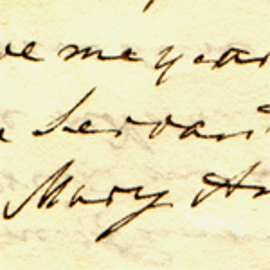 ve me your
Servant
Mary An